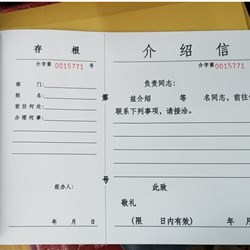 存 根
介字第0015771 号
部 门：
姓 名：
前往何处：
办理何事：
经办人：
年 月 日
第
号
介 绍 信
介字第0015771
负责同志：
兹介绍 等 名同志，前往
联系下列事项，请接洽。
此致
敬礼
（限 日内有效） 年 月